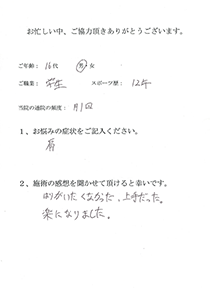 お忙しい中、ご協力頂きありがとうございます。
ご年齢： 16代 男・女
ご職業： 学生 スポーツ歴： 12年
当院の通院の頻度： 月1回
1、お悩みの症状をご記入ください。
肩
2、施術の感想を聞かせて頂けると幸いです。
はりがいたくなかった、上手だった。
楽になりました。